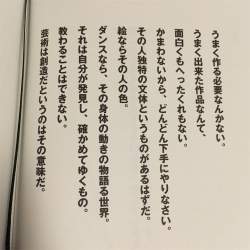 うまく作る必要なんかない。
うまく出来た作品なんて、
面白くもへったくれもない。
かまわないから、どんどん下手にやりなさい。
その人独特の文体というものがあるはずだ。
絵ならその人の色。
ダンスなら、その身体の動きの物語る世界。
それは自分が発見し、確かめてゆくもの。
教わることはできない。
芸術は創造だというのはその意味だ。